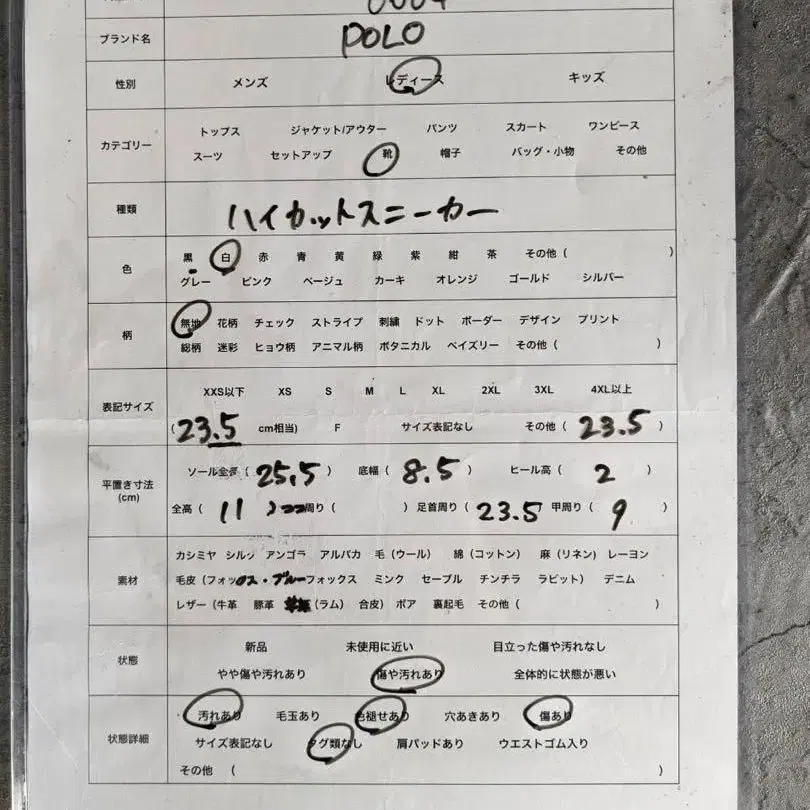 ブランド名 POLO
性別 メンズ レディース キッズ
カテゴリー トップス ジャケット/アウター パンツ スカート ワンピース
スーツ セットアップ 靴 帽子 バッグ・小物 その他
種類 ハイカットスニーカー
色 黒 白 赤 青 黄 緑 紫 紺 茶 その他 ( )
グレー ピンク ベージュ カーキ オレンジ ゴールド シルバー
柄 無地 花柄 チェック ストライプ 刺繍 ドット ボーダー デザイン プリント
総柄 迷彩 ヒョウ柄 アニマル柄 ボタニカル ペイズリー その他 ( )
表記サイズ XXS以下 XS S M L XL 2XL 3XL 4XL以上
( 23.5 cm相当) F サイズ表記なし その他 ( 23.5 )
平置き寸法 (cm) ソール全長 ( 25.5 ) 底幅 ( 8.5 ) ヒール高 ( 2 )
全高 ( 11 周り ( ) 足首周り ( 23.5 甲周り ( 9 )
素材 カシミヤ シルク アンゴラ アルパカ 毛 (ウール) 綿 (コットン) 麻 (リネン) レーヨン
毛皮 (フォックス・ブルーフォックス ミンク セーブル チンチラ ラビット) デニム
レザー (牛革 豚革 (ラム) 合皮) ボア 裏起毛 その他 ( )
状態 新品 未使用に近い 目立った傷や汚れなし
やや傷や汚れあり 傷や汚れあり 全体的に状態が悪い
状態詳細 汚れあり 毛玉あり 色褪せあり 穴あきあり 傷あり
サイズ表記なし タグ類なし 肩パッドあり ウエストゴム入り
その他 ( )